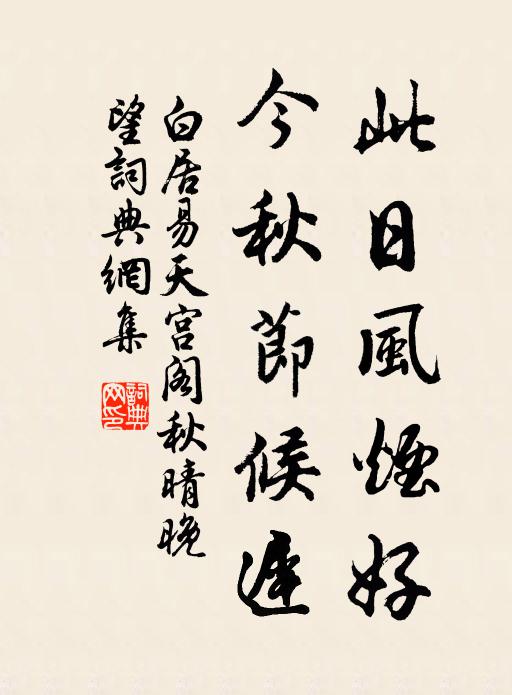 此日風煙好
今秋節候遲
白居易天宫阁秋晴晚
望詞典網集
詞典
网印